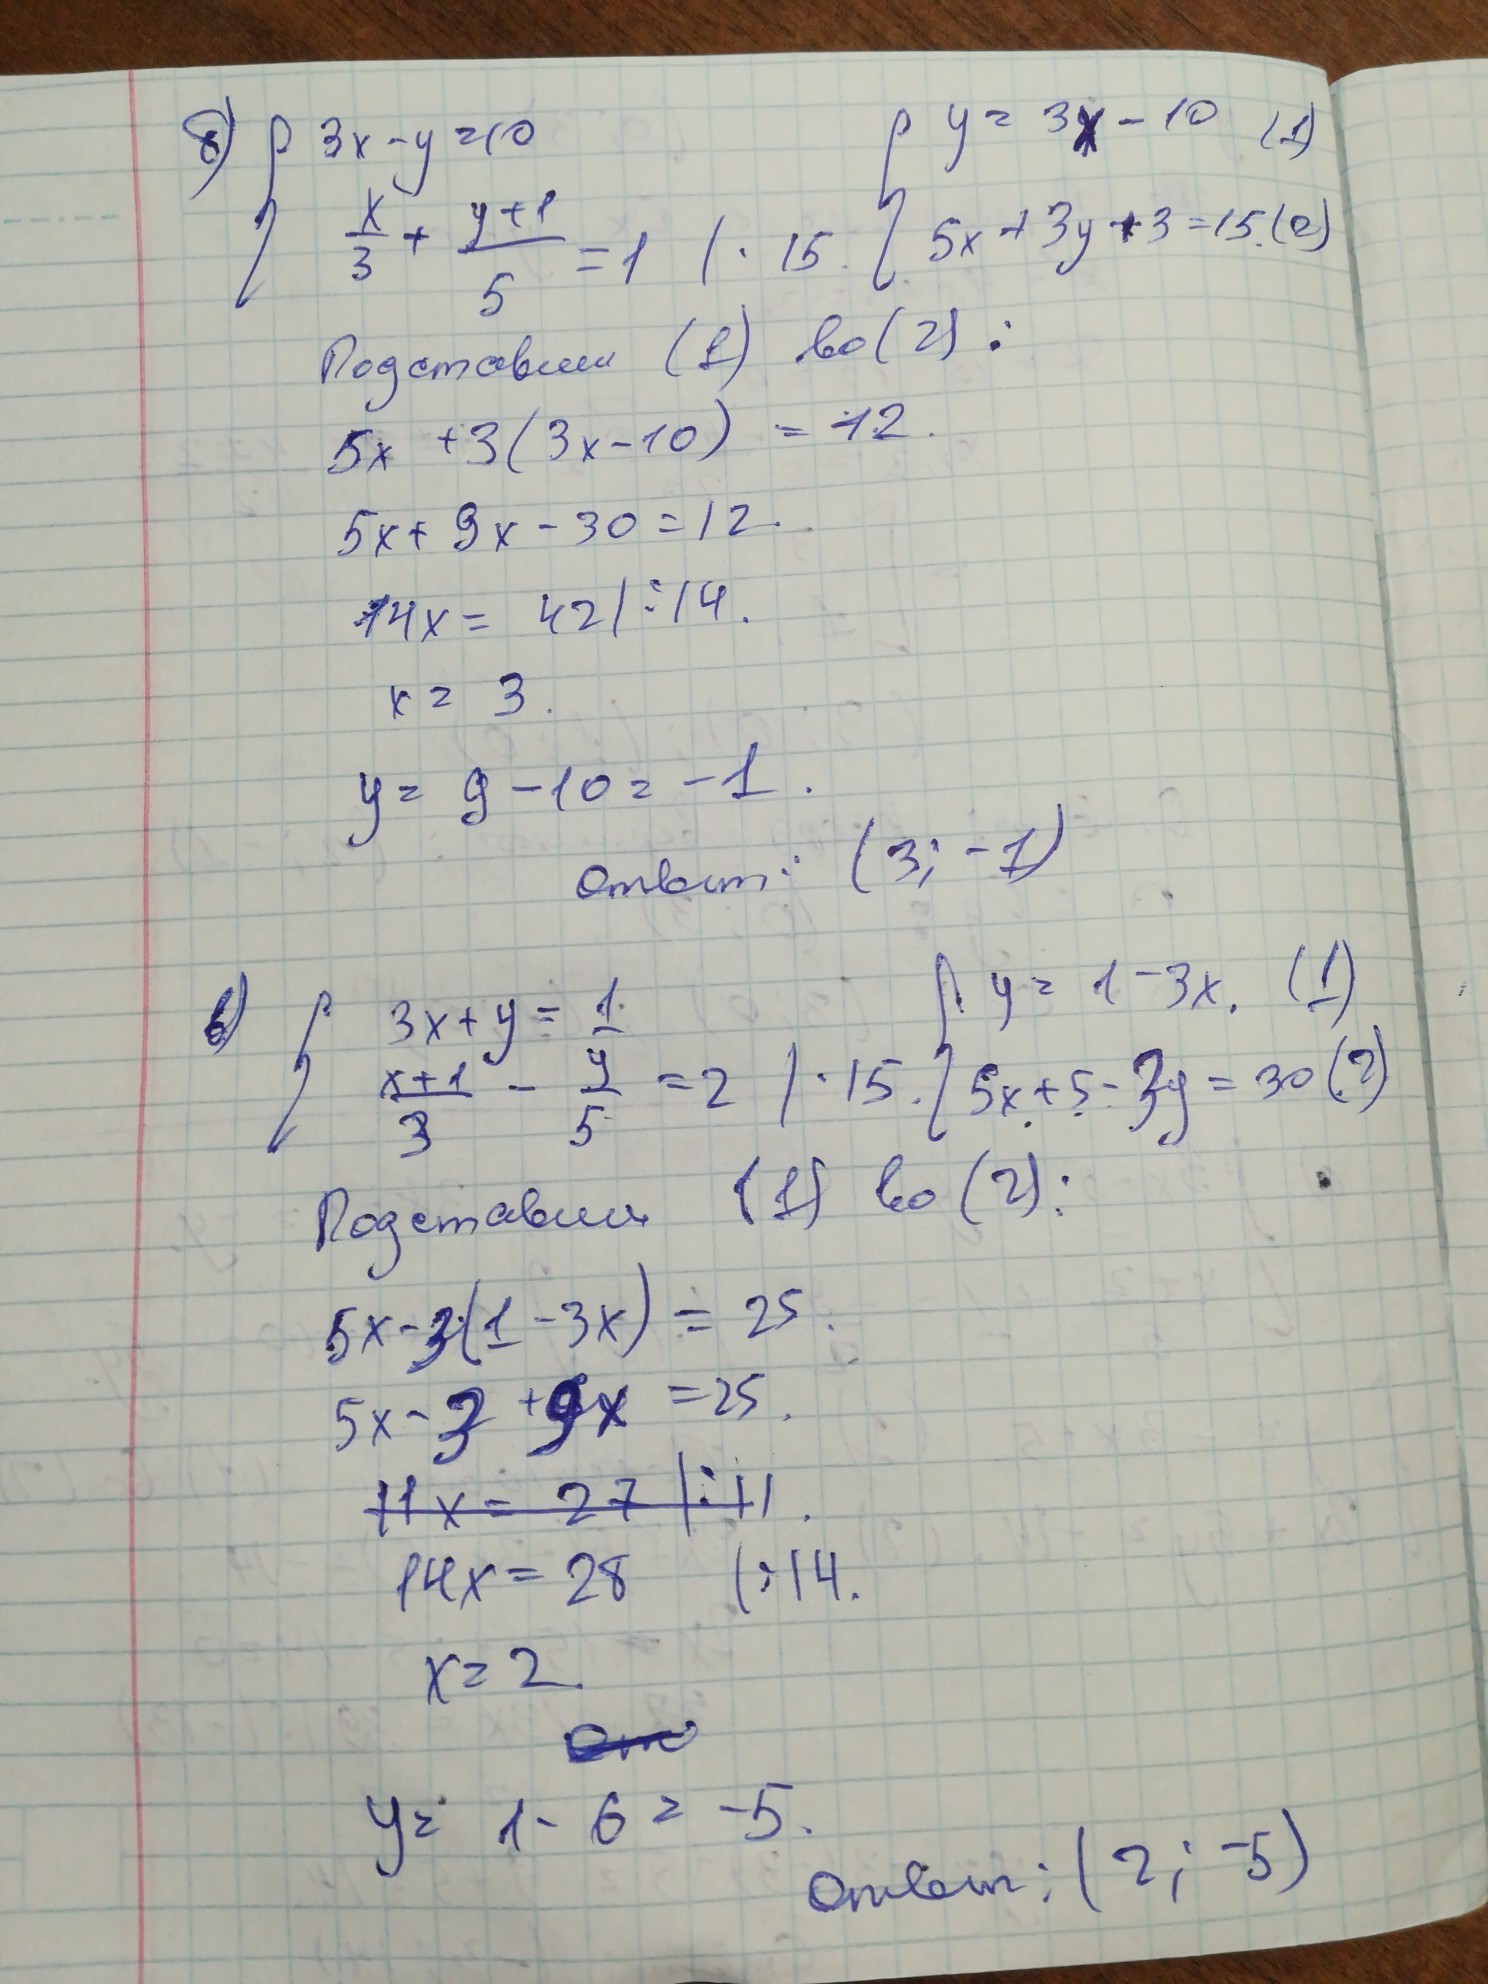 б) { 3x - y = 10
x/3 + (y+1)/5 = 1 | · 15.
{ y = 3x - 10 (1)
5x + 3y + 3 = 15. (2)
Подставим (1) во (2):
5x + 3(3x - 10) = 12.
5x + 9x - 30 = 12.
14x = 42 | : 14.
x = 3.
y = 9 - 10 = -1.
Ответ: (3; -1)
в) { 3x + y = 1
(x+1)/3 - y/5 = 2 | · 15.
{ y = 1 - 3x. (1)
5x + 5 - 3y = 30 (2)
Подставим (1) во (2):
5x - 3(1 - 3x) = 25.
5x - 3 + 9x = 25.
11x = 27 | : 11.
14x = 28 | : 14.
x = 2.
Отв
y = 1 - 6 = -5.
Ответ: (2; -5)